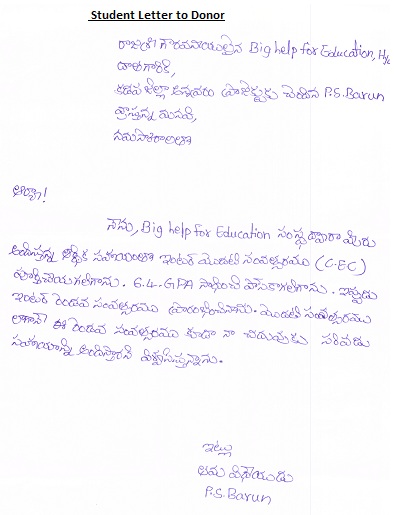 Student Letter to Donor
రాజశ్రీ గౌరవనీయులైన Big help for Education, Hyd
దాతగారికి,
కడప జిల్లా ప్రాజెక్టుకు చెందిన P.S. Barun
వ్రాస్తున్న మనవి,
నమస్కారాలతో
ఆర్యా!
నేను, Big help for Education సంస్థ ద్వారా మీరు
అందిస్తున్న ఆర్థిక సహాయంతో ఇంటర్ మొదటి సంవత్సరము (C.EC)
పూర్తిచేయగలిగాను. 6.4 GPA సాధించి పాస్ కాగలిగాను. ఇప్పుడు
ఇంటర్ రెండవ సంవత్సరము ప్రారంభించినాను. మొదటి సంవత్సరము
లాగానే ఈ రెండవ సంవత్సరము కూడా నా చదువుకు సరిపడు
సహాయాన్ని అందిస్తారని విశ్వసిస్తున్నాను.
ఇట్లు
తమ విధేయుడు
P.S. Barun